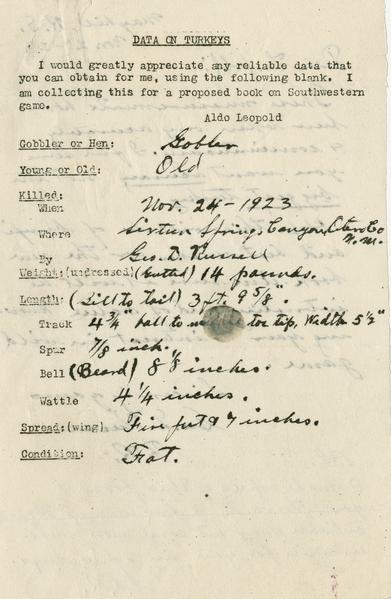 DATA ON TURKEYS
I would greatly appreciate any reliable data that
you can obtain for me, using the following blank. I
am collecting this for a proposed book on Southwestern
game.
Aldo Leopold
Gobbler or Hen: Gobler
Young or Old: Old
Killed:
When Nov. 24 - 1923
Where Sixteen Springs Canyon, Otero Co N.M.
By Geo. D. Russell
Weight: (undressed) (Gutted) 14 pounds.
Length: (Bill to Tail) 3 ft. 9 5/8".
Track 4 3/4" ball to middle toe tip, Width 5 1/2"
Spur 7/8 inch.
Bell (Beard) 8 1/8 inches.
Wattle 4 1/4 inches.
Spread: (wing) Five feet & 7 inches.
Condition: Fat.